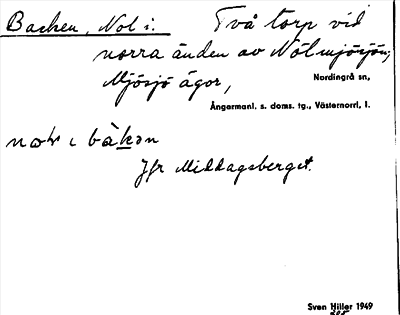 Backen, Nol i. Två torp vid
norra änden av Nölmjösjön;
Mjösjö ägor,
Nordingrå sn,
Ångermanl. s. doms. tg., Västernorrl. l.
ι bàkən
Jfr Middagsberget.
Sven Hiller 1949